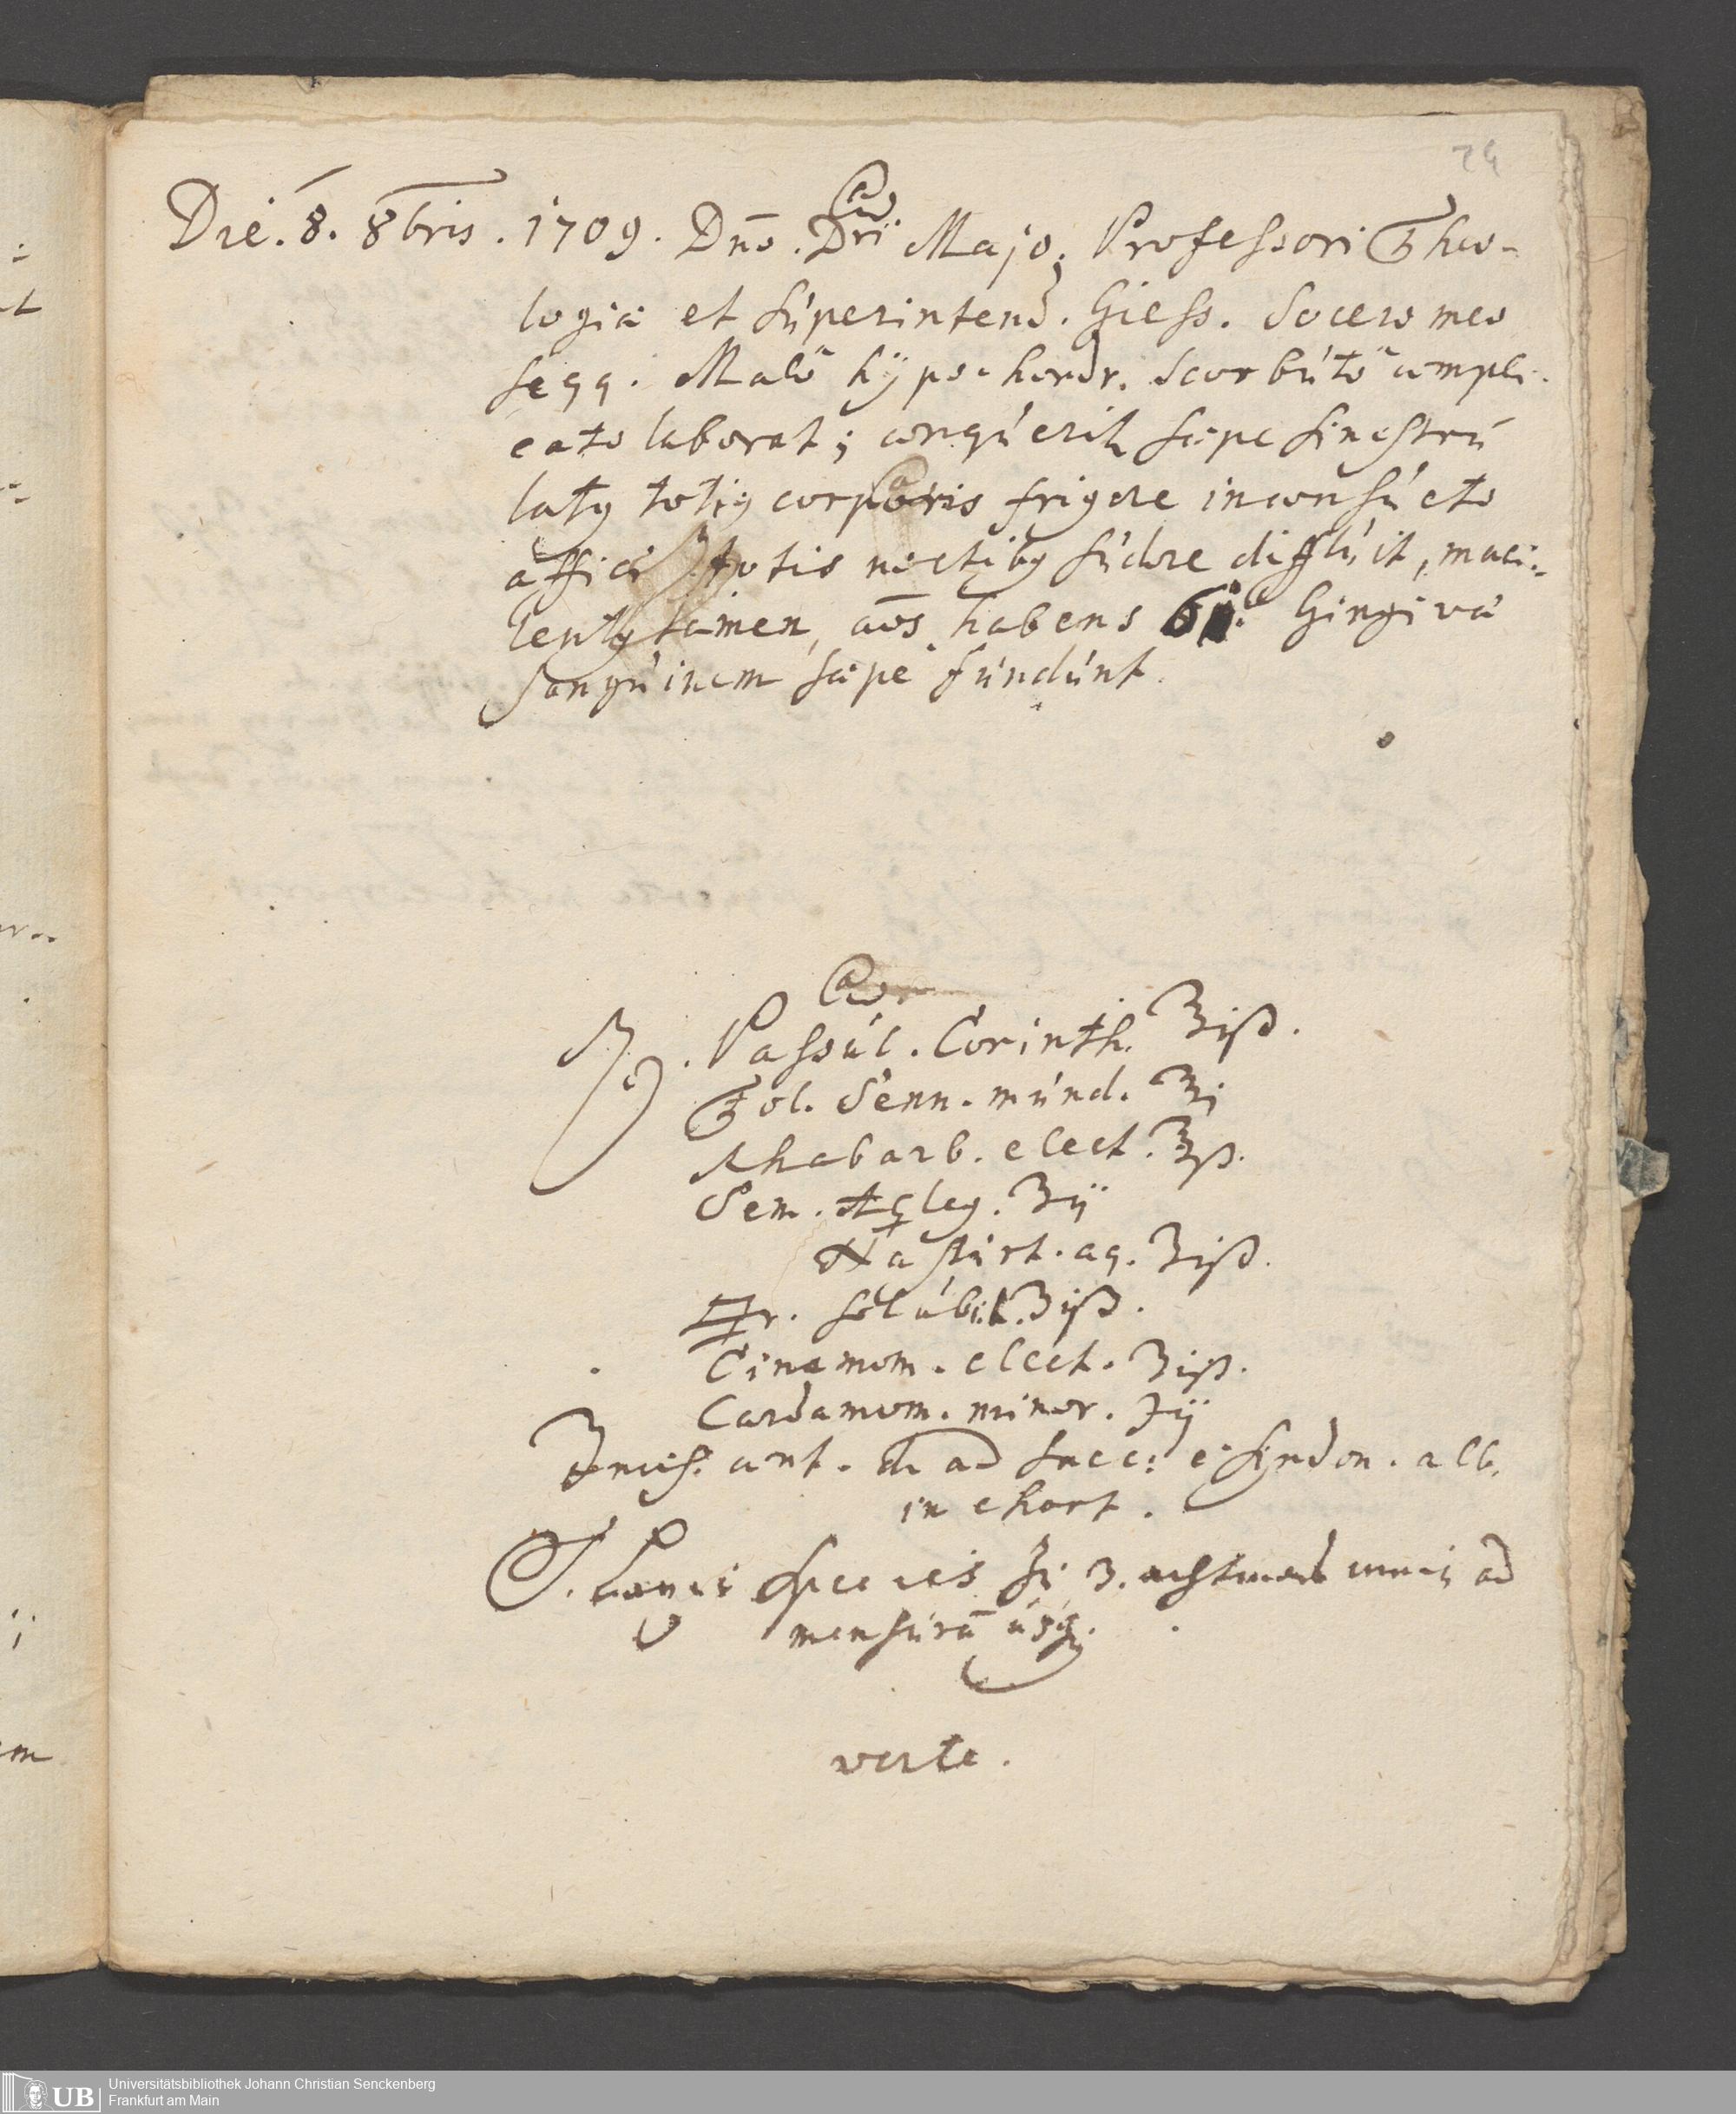 24
Die. 8. 8bris. 1709. Dn̄o. Dri Majo, Professori Theo-
logiæ et Superintend. Giess. Socero meo
seqq. Malo hÿpochondr. Scorbuto compli-
cato laborat; conqueritur sæpe sinistrū
latus totius corporis frigore inconsueto
affici, totis noctibus sudore diffluit, maci-
lentus tamen, aōs habens 61. Gingivæ
sanguinem sæpe fundunt.
℞. Passul. Corinth. ℥iß.
Fol. Senn. mund. ℥j
Rhabarb. elect. ℥ß.
Sem. Aqleg. ʒij
Nasturt. aq. ʒiß.
🜿r. solubil. ʒiß.
Cinamom. elect. ʒiß.
Cardamom. minor. ℈ij
Incis. cont. d. ad sacc: e sÿndon. alb.
in chart.
S. Species zu 3. ad
mensurā usq.
verte.
Universitätsbibliothek Johann Christian Senckenberg
Frankfurt am Main
UB